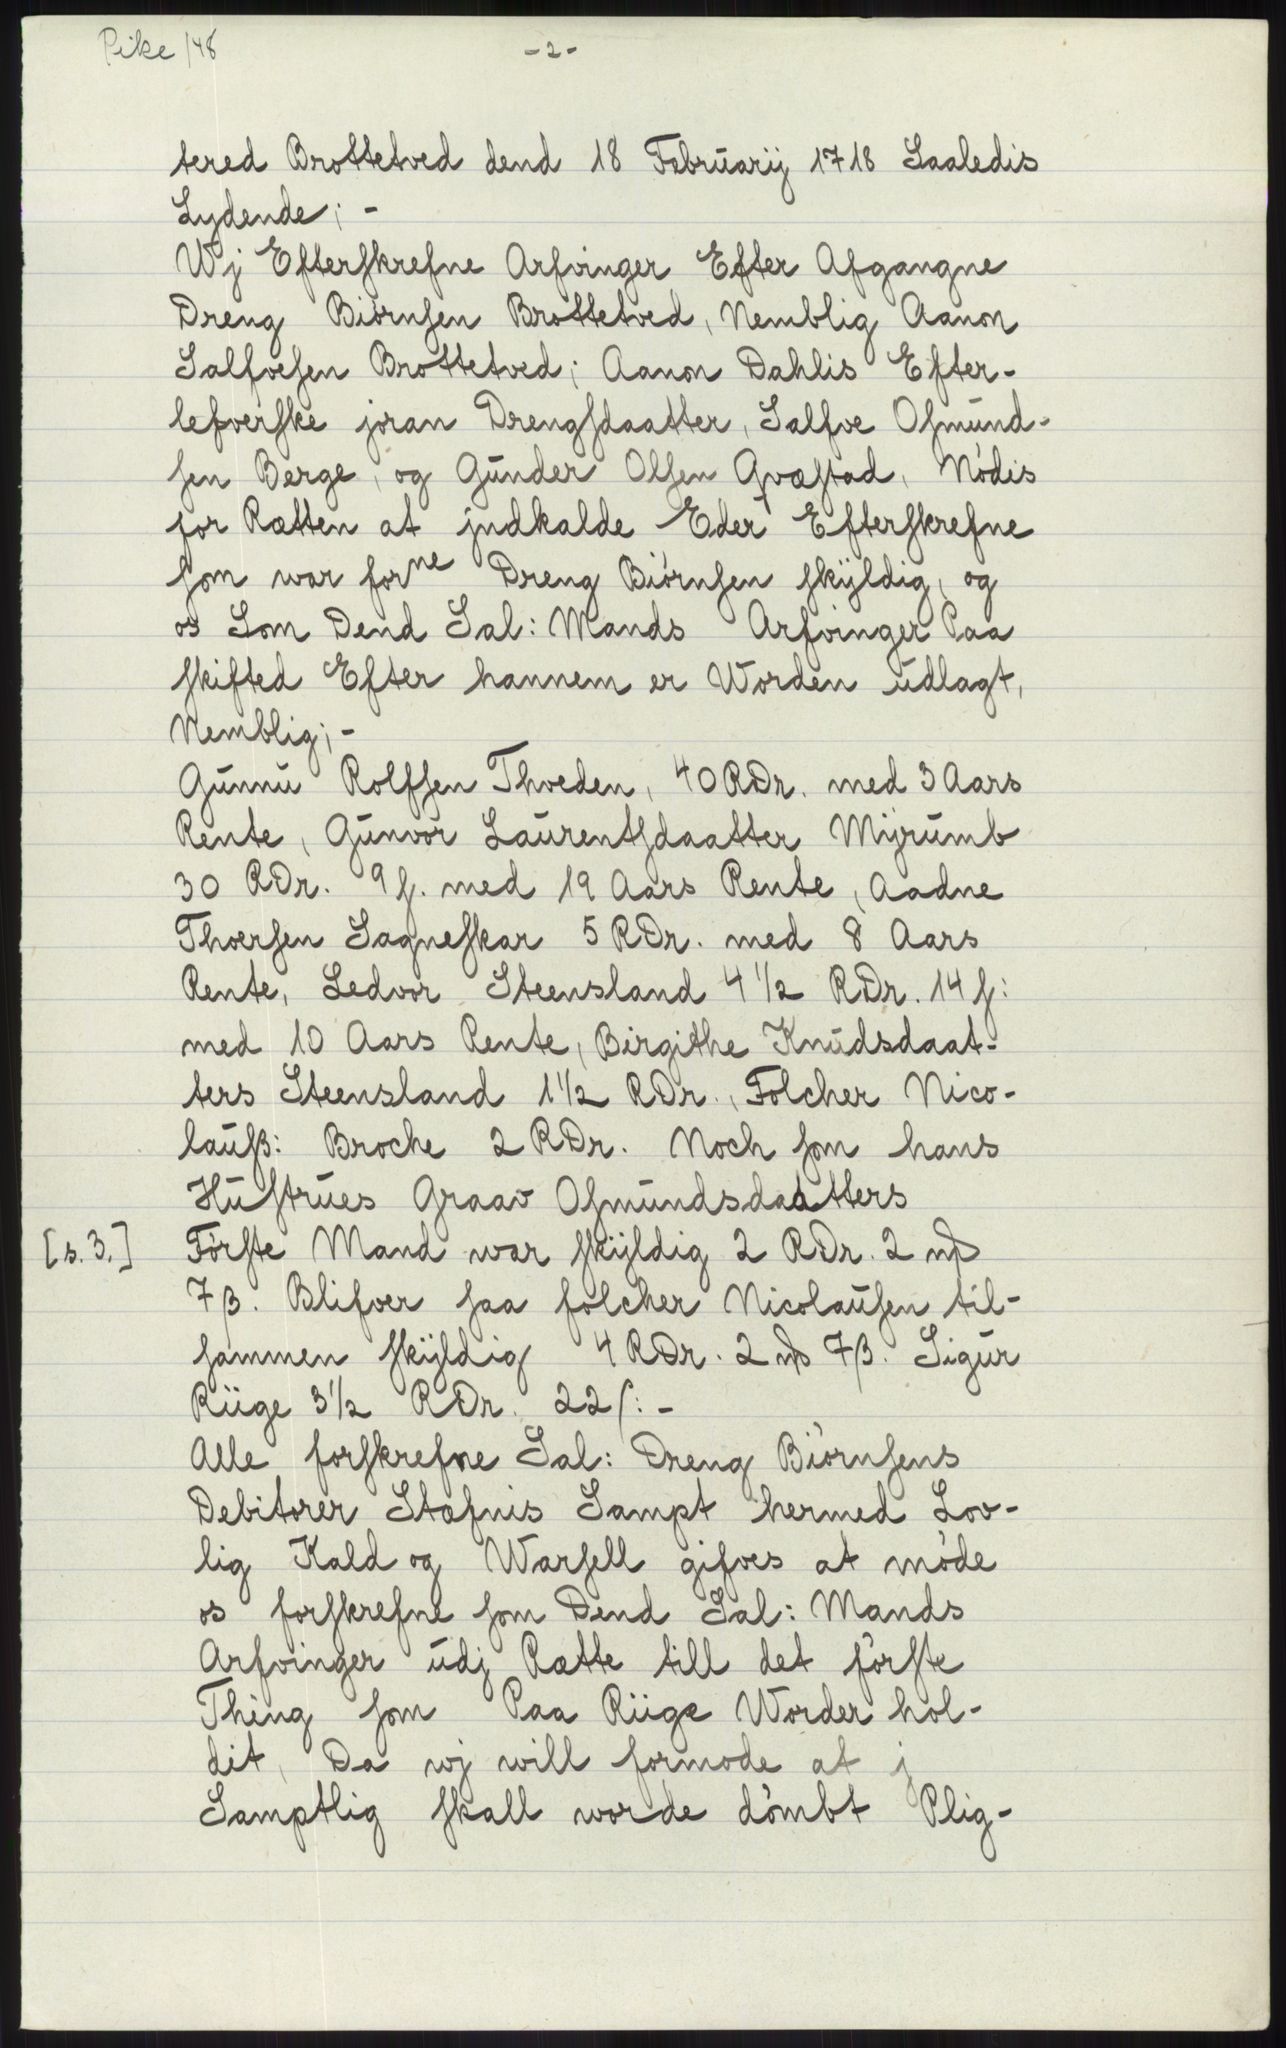 Pike /48
-2-
tered Brottetved dend 18 Februarij 1718 Saaledis
Lydende; -
Wj Efterskrefne Arfvinger Efter Afgangne
Dreng Biörnsen Brottetved, Nemblig Aanon
Salfvesen Brottetved; Aanon Dahlis Efter-
lefverske joran Drengsdaatter, Salfve Osmund-
sen Berge, og Gunder Olsen Qvæstad, Nödis
for Rætten at jndkalde Eder Efterskrefne
som war forne Dreng Biörnsen skÿldig, og
os Som Dend Sal: Mands Arfvinger Paa
skifted Efter hannem er Worden udlagt,
Nemblig; -
Gunnu Rolfsen Thveden, 40 RDr. med 3 Aars
Rente, Gunvor Laurentsdaatter Mÿrumb
30 RDr. 9 s. med 19 Aars Rente, Aadne
Thorsen Sagneskar 5 RDr. med 8 Aars
Rente, Ledvor Steensland 4 1/2 RDr. 14 s:
med 10 Aars Rente, Birgithe Knudsdaat-
ters Steensland 1 1/2 RDr., Folcher Nico-
lauß: Broche 2 RDr. Noch som hans
Hustrues Graav Osmundsdaatters
[s. 3.] Förste Mand war skÿldig 2 RDr. 2 mk
7 β. Blifver saa folcher Nicolausen til-
sammen skÿldig 4 RDr. 2 mk 7 β. Sigur
Riige 3 1/2 RDr. 22 s: -
Alle forskrefne Sal: Dreng Biörnsens
Debitorer Stæfnis Sampt hermed Lov-
lig Kald og Warsell gifves at möde
os forskrefne som Dend Sal: Mands
Arfvinger udj Rætte till det förste
Thing som Paa Riige Worder hol-
dit, Da wj will formode at j
Samptlig skall worde dömbt Plig-